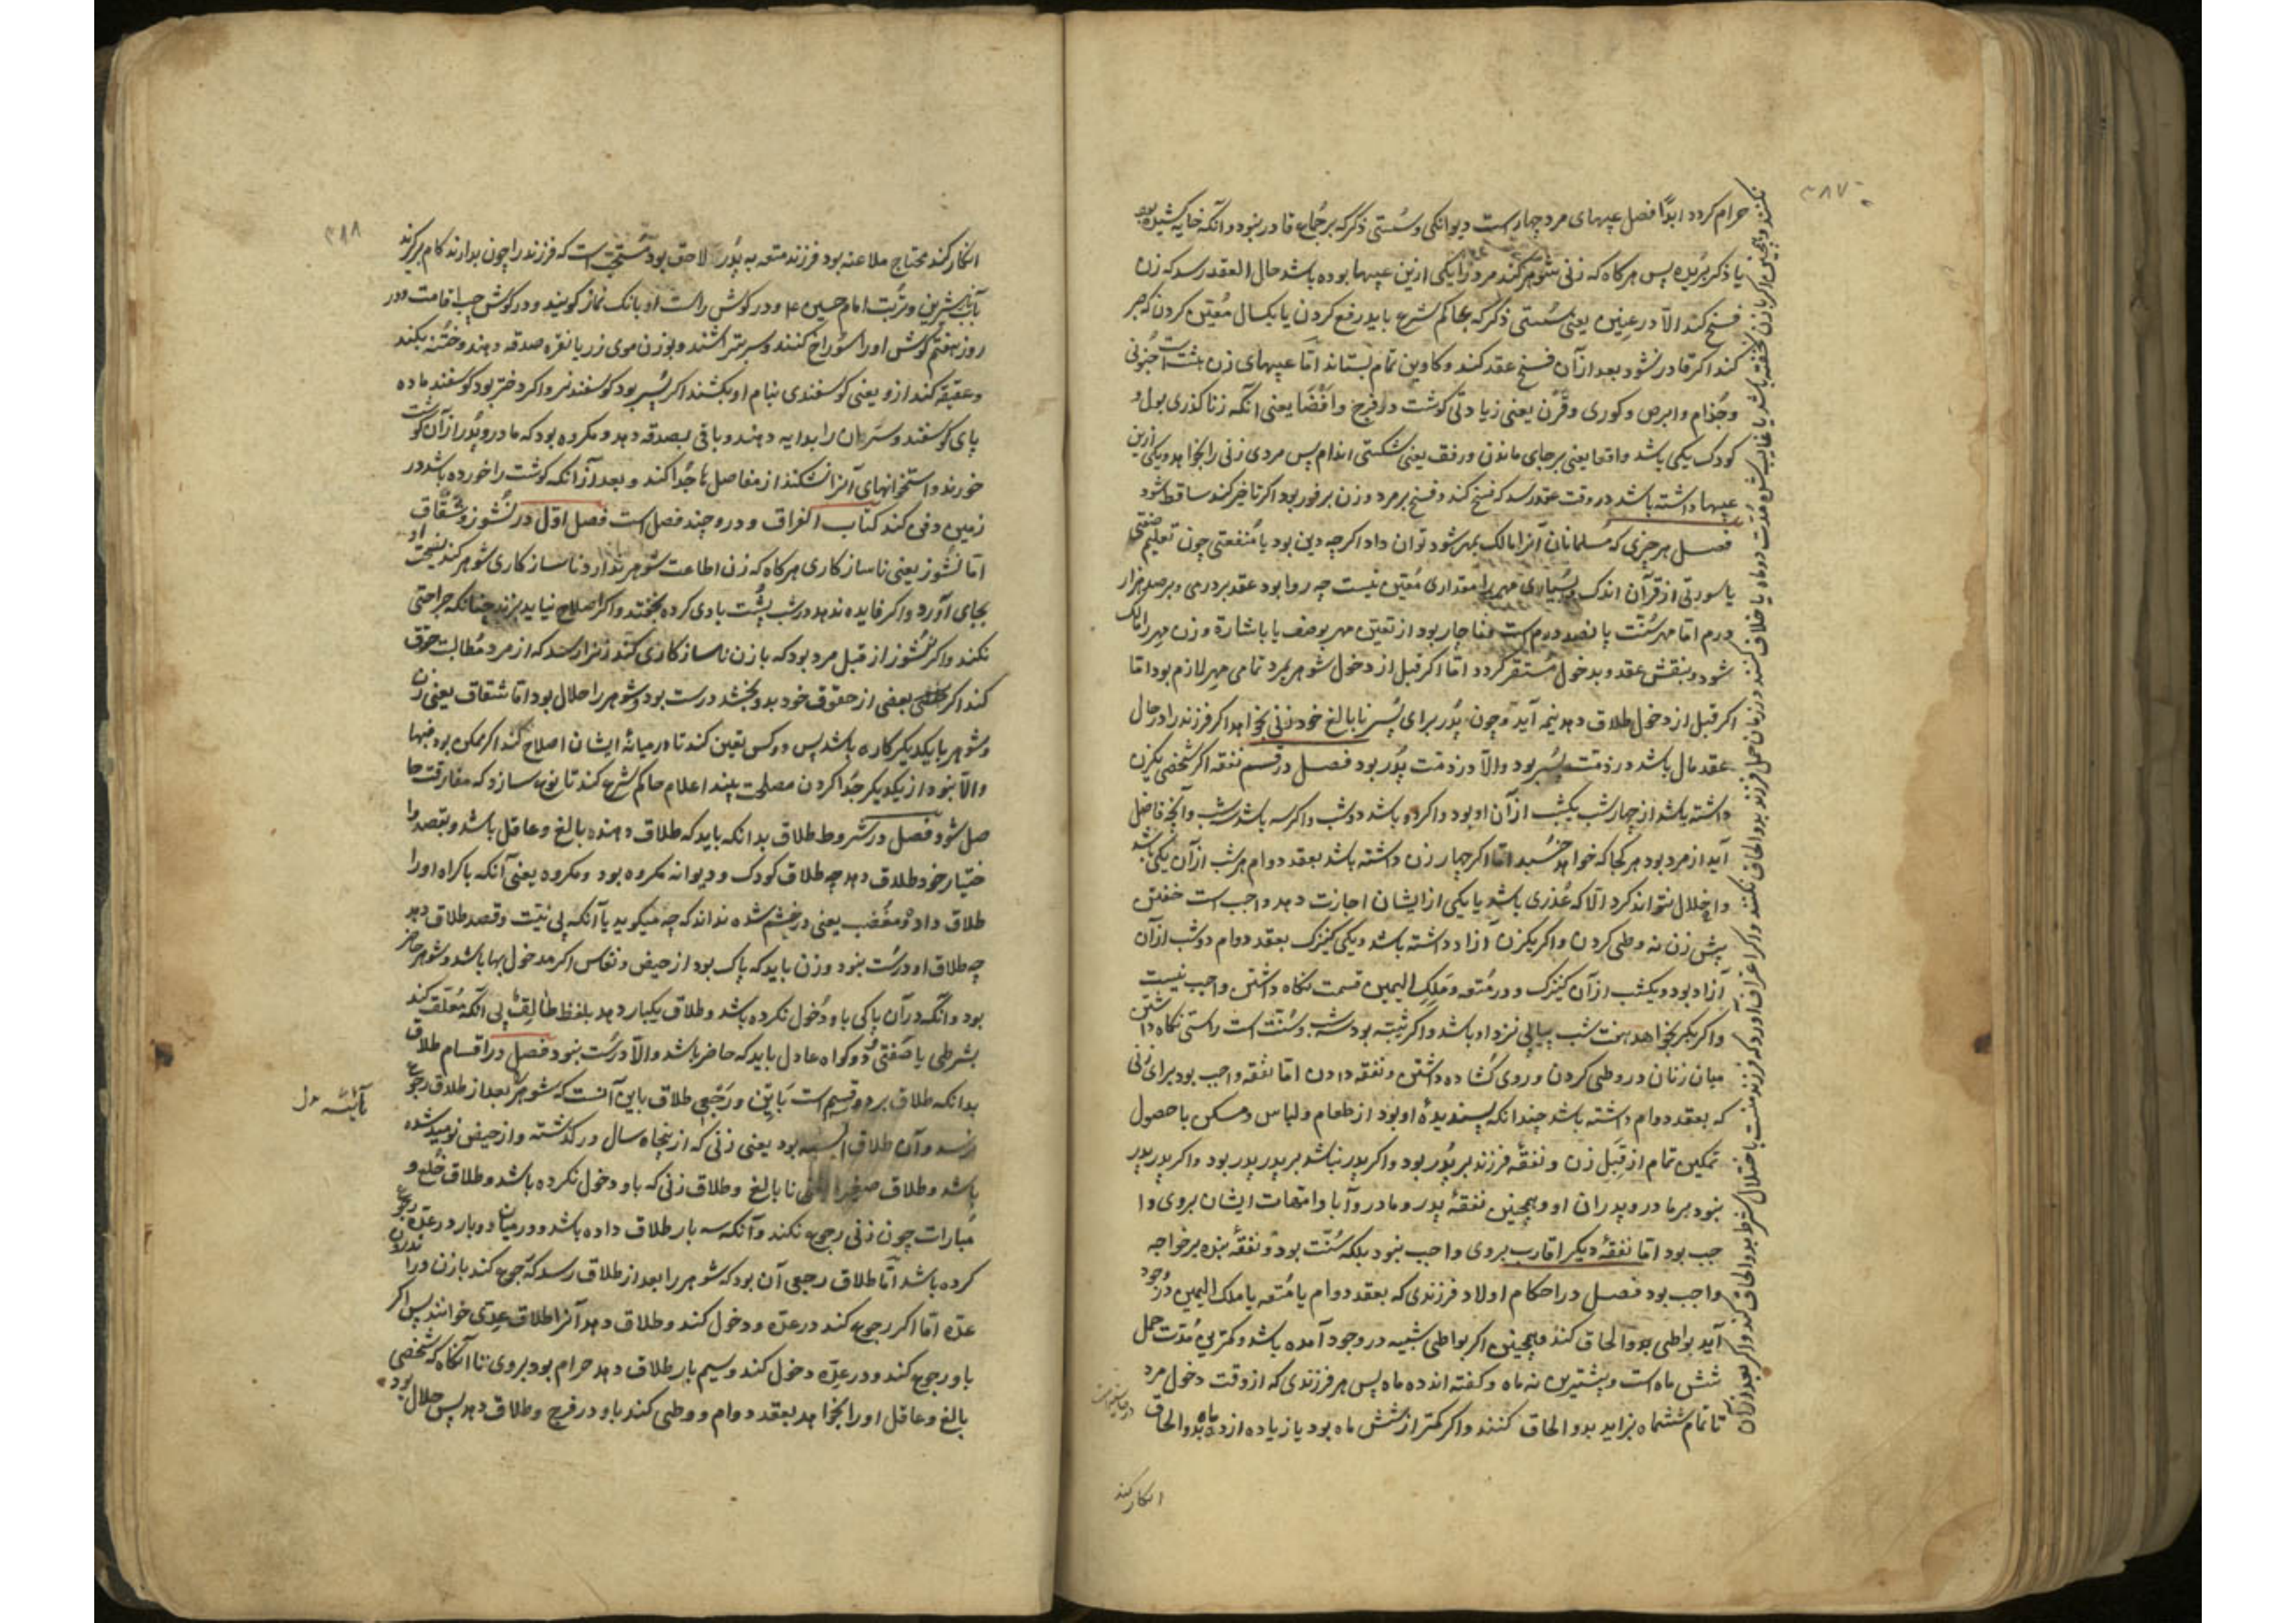 ۳۸۷
حرام کردد ابدًا فصل عیبهای مرد چهارست دیوانکی وسُستی ذکر که برجُماع قادر نبود و آنکه خایه کشیده بود
یا ذکر بُریده پس هرکاه که زنی شوهر کند مرد را یکی ازین عیبها بوده باشد حال العقد رسد که زن
فسخ کند الّا در عِنین یعنی سُستی ذکر که بحاکم شرع باید رفع کردن یا یکسال مُعیّن کردن که صبر
کند اکر قادر نشود بعد از آن فسخ عقد کند و کاوین تمام بستاند امّا عیبهای زن هشت است جُنونی
وجُذام وابرص و کوری وقَرن یعنی زیادتی کوشت در فرج وافضا یعنی آنکه زنا کذری بول و
کودک یکی باشد واقعا یعنی برجای ماندن ورفق یعنی شکستی اندام پس مردی زنی را بخواهد ویکی ازین
عیبها داشته باشد در وقت عقد رسد که فسخ کند و فسخ بر مرد و زن بر فور بود اکر تاخیر کند ساقط شود
فصل هر چیزی که مسلمانان آنرا مالک بهر شود توان داد اکرچه دین بود یا مُنفعتی چون تعلیم صنعتی
یا سورتی از قرآن اندک وبسیاری مهر را مقداری مُعیّن نیست چه روا بود عقد بر درمی و بر صد هزار
درم امّا مهر سُنّت پانصد درم است مفاجار بود از تعیّن مهر بوصف یا باشارة و زن مهر را مالک
شود و بنفش عقد و بدخول مُستقر کردد امّا اکر قبل از دخول شوهر بمرد تمامی مهر لازم بود امّا
اکر قبل از دخول طلاق دهد نیمه آید و چون پدر برای پسر نابالغ خود زنی بخواهد اکر فرزند را در حال
عقد مال باشد در ذمّت پسر بود والّا در ذمّت پدر بود فصل در قسم نفقه اکر شخصی یکزن
داشته باشد از چهار شب یکشب از آن او بود و اکر دو باشد دو شب و اکر سه باشد سه شب و آنچه فاضل
آید از مرد بود هر کجا که خواهد خسبد امّا اکر چهار زن داشته باشد بعقد دوام هر شب از آن یکی باشد
واخلال نتواند کرد الّا که عُذری باشد یا یکی از ایشان اجازت دهد و اجب است خفتن
پیش زن نه وطی کردن و اکر یکزن آزاد داشته باشد و یکی کنیزک بعقد دوام دو شب از آن
آزاد بود و یکشب از آن کنیزک و در مُتعه و ملک الیمین قسمت نکاه داشتن واجب نیست
و اکر بکر بخواهد هفت شب پیاپی نزد او باشد و اکر ثیّبه بود سه شب و سُنّت است راستی نکاه داشتن
میان زنان در وطی کردن و روی کشاده داشتن و نفقه دادن امّا نفقه واجب بود برای زنی
که بعقد دوام داشته باشد چندانکه پسندیدهٔ او بود از طعام و لباس و مسکن با حصول
تمکین تمام از قِبَل زن و نفقهٔ فرزند بر پدر بود و اکر پدر نباشد بر پدر پدر بود و اکر پدر پدر
نبود بر مادر و پدران او و همچنین نفقهٔ پدر و مادر و آبا و امّهات ایشان بروی وا
جب بود امّا نفقهٔ دیکر اقارب بروی واجب نبود بلکه سُنّت بود و نفقهٔ بنده بر خواجه
واجب بود فصل در احکام اولاد فرزندی که بعقد دوام یا مُتعه یا ملک الیمین در وجود
آید بواطی بدو الحاق کنند و همچنین اکر بواطی شبیه در وجود آمده باشد و کمترین مُدّت حمل
شش ماه است و بیشترین نه ماه و کفته اند ده ماه پس هر فرزندی که از وقت دخول مرد
تا تمام ششماه بزاید بدو الحاق کنند و اکر کمتر از شش ماه بود یا زیاده از ده ماه بدو الحاق
انکار کند
۳۸۸
انکار کند محتاج ملاعنه بود فرزند متعه به پدر لاحق بود مُستحبّ است که فرزند را چون بدارند کام برکیرند
بآب شیرین و تُربت امام حسین ع و در کوش راست او بانک نماز کویند و در کوش چپ اقامت و در
روز هفتم کوش او را سوراخ کنند و سر بتراشند و بوزن موی زر یا نقره صدقه دهند و ختنه بکنند
و عقیقه کند ازو یعنی کوسفندی بنام او بکشند اکر پسر بود کوسفند نر و اکر دختر بود کوسفند ماده
پای کوسفند و سَر آن را بدایه دهند و باقی بصدقه دهد و مکروه بود که مادر و پدر از آن کوشت
خورند و استخوانهای آنرا نشکنند از مفاصل ها جُدا کند و بعد از آنکه کوشت را خورده باشد در
زمین دفی کند کتاب الفراق و درو چند فصل است فصل اوّل در نُشوز و شقاق
امّا نُشوز یعنی ناسازکاری هرکاه که زن اطاعت شوهر ندارد و ناسازکاری شوهر کند نصیحت او
بجای آورد و اکر فایده ندهد در شب پُشت بادی کرده بخفتد و اکر اصلاح نیاید بزند چنانکه جراحتی
نکند و اکر نُشوز از قبل مرد بود که با زن ناسازکاری کند زنرا رسد که از مرد مُطالبت حقوق
کند اکر بعضی از حقوق خود بدو بخشد درست بود و شوهر را حلال بود امّا شقاق یعنی زن
و شوهر با یکدیکر کاره باشد پس دو کس تعین کند تا در میانهٔ ایشان اصلاح کند اکر ممکن بود فبها
والّا نبود از یکدیکر جُدا کردن مصلحت بینند اعلام حاکم شرع کند تا نوع سازد که مفارقت حا
صل شود فصل در شروط طلاق بدانکه باید که طلاق دهنده بالغ و عاقل باشد و بقصد وا
ختیار خود طلاق دهد چه طلاق کودک و دیوانه مکروه بود و مکروه یعنی آنکه باکراه او را
طلاق داد و مغضب یعنی در خشم شده نداند که چه میکوید یا آنکه بی نیّت و قصد طلاق دهد
چه طلاق او درست نبود و زن باید که پاک بود از حیض و نفاس اکر مدخول بها باشد و شوهر حاضر
بود و آنکه در آن پاکی با و دُخول نکرده باشد و طلاق یکبار دهد بلفظ طالق بی آنکه مُعلّقه کند
بشرطی یا صفتی و دو کواه عادل باید که حاضر باشد والّا درست نبود فصل در اقسام طلاق
بدانکه طلاق بر دو قسم است بَایِن و رَجعی طلاق باین آنست که شوهر بعد از طلاق رجوع
نرسد و آن طلاق آیسه بود یعنی زنی که از پنجاه سال در کذشته و از حیض نومید شده
باشد و طلاق صغیرا یعنی نابالغ و طلاق زنی که باو دخول نکرده باشد و طلاق خُلع و
مُبارات چون زنی رجوع نکند و آنکه سه بار طلاق داده باشد و در میان دو بار در عدّه رجوع
کرده باشد امّا طلاق رجعی آن بود که شوهر را بعد از طلاق رسد که رجوع کند بازن در
عدّه امّا اکر رجوع کند در عدّه و دخول کند و طلاق دهد آنرا طلاق عدّی خوانند پس اکر
باو رجوع کند و در عدّه دخول کند و سیم بار طلاق دهد حرام بود بروی تا آنکاه که شخصی
بالغ و عاقل او را بخواهد بعقد دوام و وطی کند باو در فرج و طلاق دهد پس حلال بود